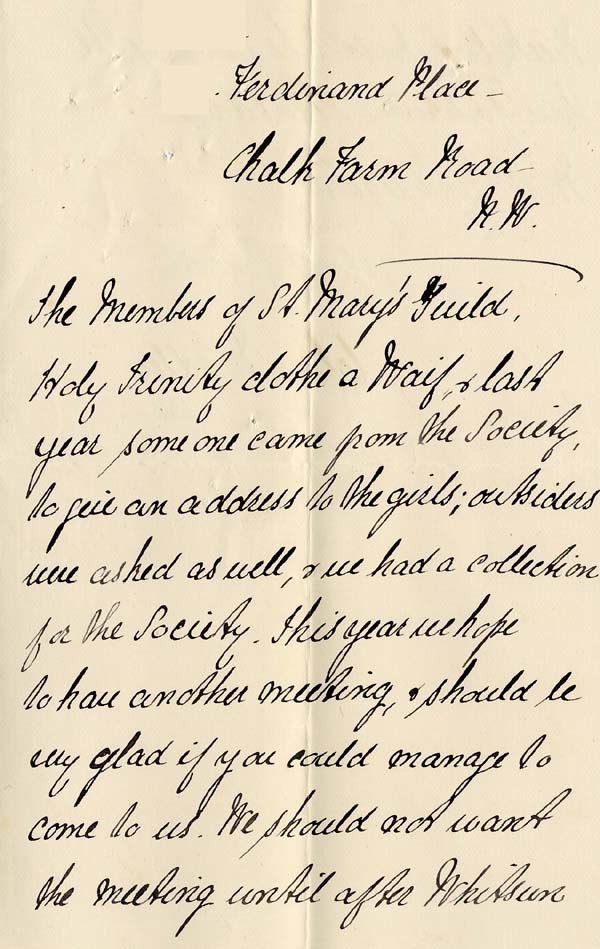 Ferdinand Place -
Chalk Farm Road -
N.W.
The Members of St. Mary's Guild,
Holy Trinity clothe a Waif, & last
year some one came from the Society,
to give an address to the girls; outsiders
were asked as well, & we had a collection
for the Society. This year we hope
to have another meeting, & should be
very glad if you could manage to
come to us. We should not want
the meeting until after Whitsun